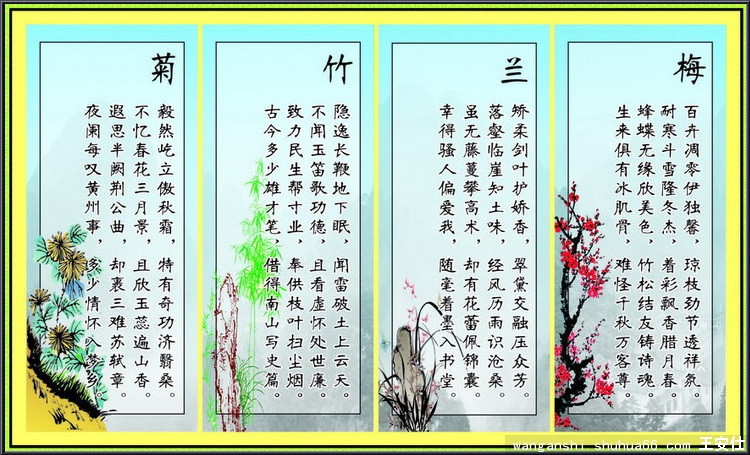 梅
百卉凋零伊独馨，琼枝劲节透祥氛。
耐寒斗雪隆冬杰，着彩飘香腊月春。
蜂蝶无缘欣美色，竹松结友铸诗魂。
生来俱有冰肌骨，难怪千秋万客尊。
兰
矫柔剑叶护娇香，翠黛交融压众芳。
落壑临崖知土味，经风历雨识沧桑。
虽无藤蔓攀高术，却有花蕾佩锦囊。
幸得骚人偏爱我，随毫着墨入书堂。
竹
隐逸长鞭地下眠，闻雷破土上云天。
不闻玉笛歌功德，且看虚怀处世廉。
致力民生帮寸业，奉供枝叶扫尘烟。
古今多少雄才笔，借得南山写史篇。
菊
毅然屹立傲秋霜，特有奇功济翳桑。
不忆春花三月景，且欣玉蕊遍山香。
遐思半阙荆公曲，却裹三难苏轼章。
夜阑每叹黄州事，多少情怀入乡。
wanganshi.shuhua66.com 王安仕